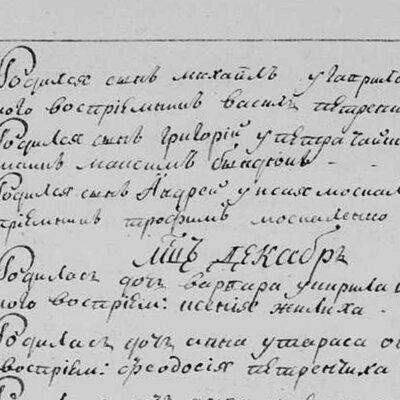 Родился сынъ михаилъ у гаврила
ного воспріемникъ василь петренк
Родился сынъ григорій у петра чайи
мникъ максимъ бындюкъ -
Родился сынъ Андрей у исая москал
пріемникъ трофимъ москаленко
Мцъ декабръ
Родилась дочъ варвара у кирила
ного воспріем: ксенія жилиха.
Родилась дочъ анна у тараса
воспріем: феодосія петренчиха